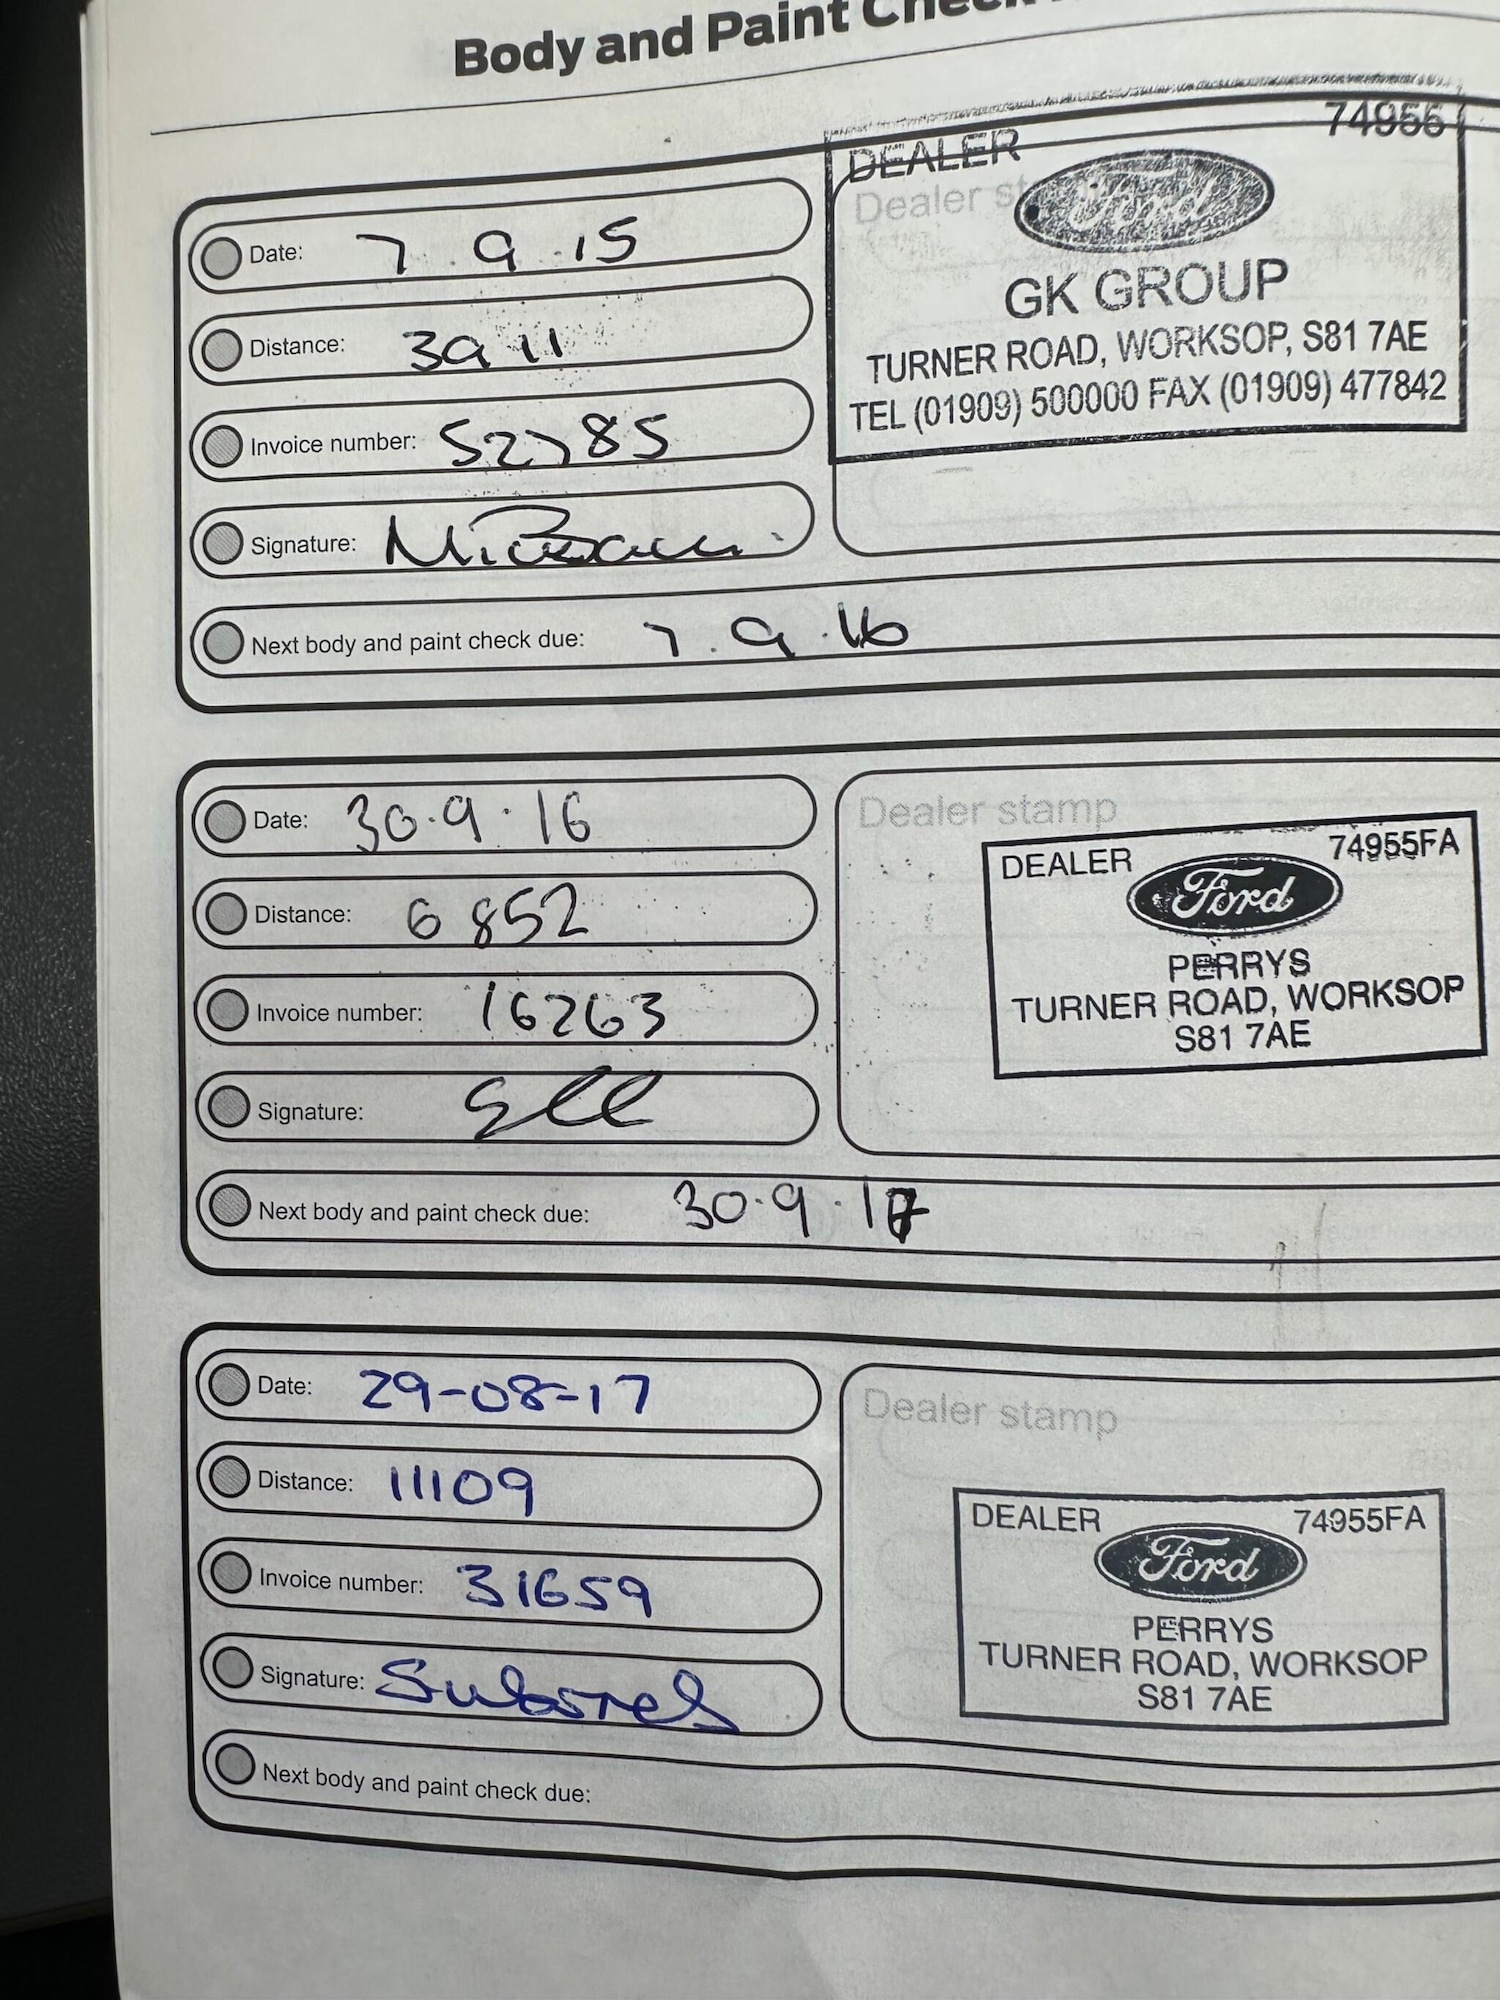 Body and Paint Check
DEALER 74955
Dealer st
Ford
GK GROUP
TURNER ROAD, WORKSOP, S81 7AE
TEL (01909) 500000 FAX (01909) 477842
Date: 7.9.15
Distance: 3911
Invoice number: 52785
Signature:
Next body and paint check due: 7.9.16
Date: 30.9.16
Distance: 6852
Invoice number: 16263
Signature:
Next body and paint check due: 30.9.17
Dealer stamp
DEALER 74955FA
Ford
PERRYS
TURNER ROAD, WORKSOP
S81 7AE
Date: 29-08-17
Distance: 11109
Invoice number: 31659
Signature:
Next body and paint check due:
Dealer stamp
DEALER 74955FA
Ford
PERRYS
TURNER ROAD, WORKSOP
S81 7AE